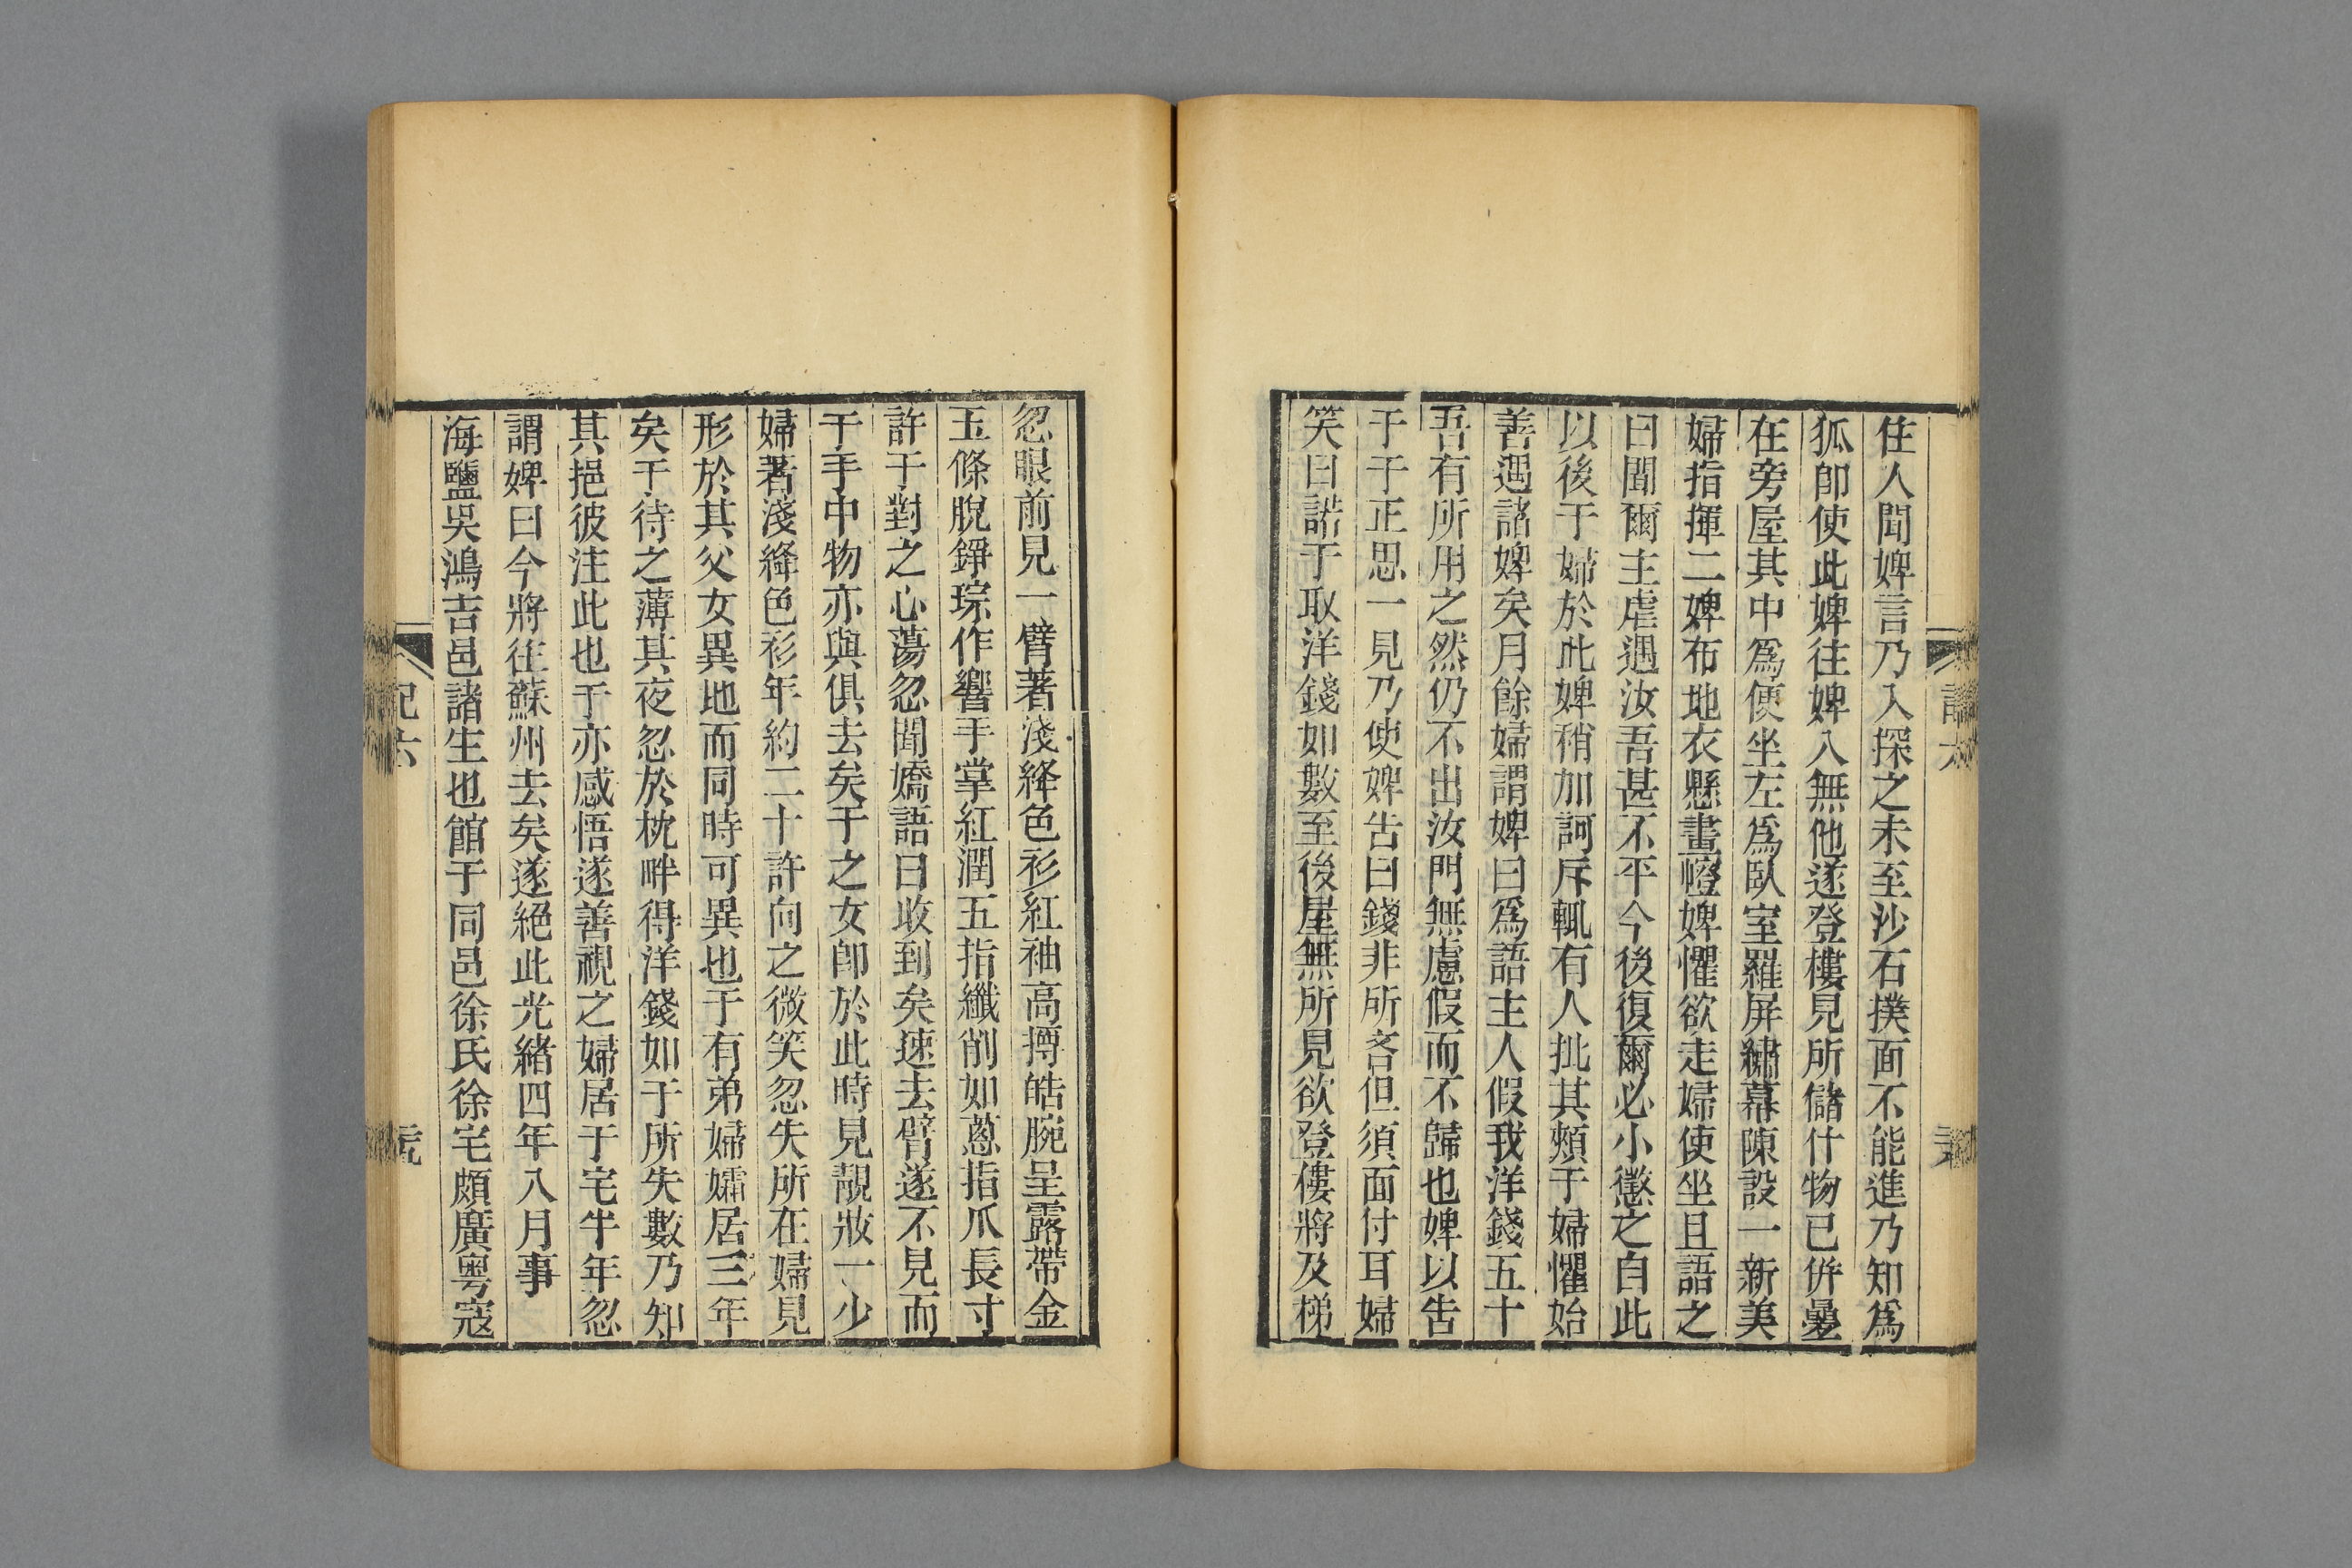 住人聞婢言乃入探之未至沙石撲面不能進乃知爲
狐卽使此婢往婢入無他遂登樓見所儲什物已併曡
在旁屋其中爲便坐左爲臥室羅屏繡幕陳設一新美
婦指揮二婢布地衣懸畫㡧婢懼欲走婦使坐且語之
曰聞爾主虐遇汝吾甚不平今後復爾必小懲之自此
以後于婦於此婢稍加訶斥輒有人批其頰于婦懼始
善遇諸婢矣月餘婦謂婢曰爲語主人假我洋錢五十
吾有所用之然仍不出汝門無慮假而不歸也婢以告
于于正思一見乃使婢告曰錢非所吝但須面付耳婦
笑曰諾于取洋錢如數至後屋無所見欲登僂將及梯
忽眼前見一臂著淺絳色衫紅袖高揎皓腕呈露帶金
玉條脫錚琮作響手掌紅潤五指纖削如蔥指爪長寸
許于對之心蕩忽聞嬌語曰收到矣速去臂遂不見而
于手中物亦與俱去矣于之女卽於此時見靚妝一少
婦著淺絳色衫年約二十許向之微笑忽失所在婦見
形於其父女異地而同時可異也于有弟婦孀居三年
矣于待之薄其夜忽於枕畔得洋錢如于所失數乃知
其挹彼注此也于亦感悟遂善視之婦居于宅半年忽
謂婢曰今將往蘇州去矣遂絕此光緒四年八月事
海鹽吳鴻吉邑諸生也館于同邑徐氏徐宅頗廣粵寇
記六